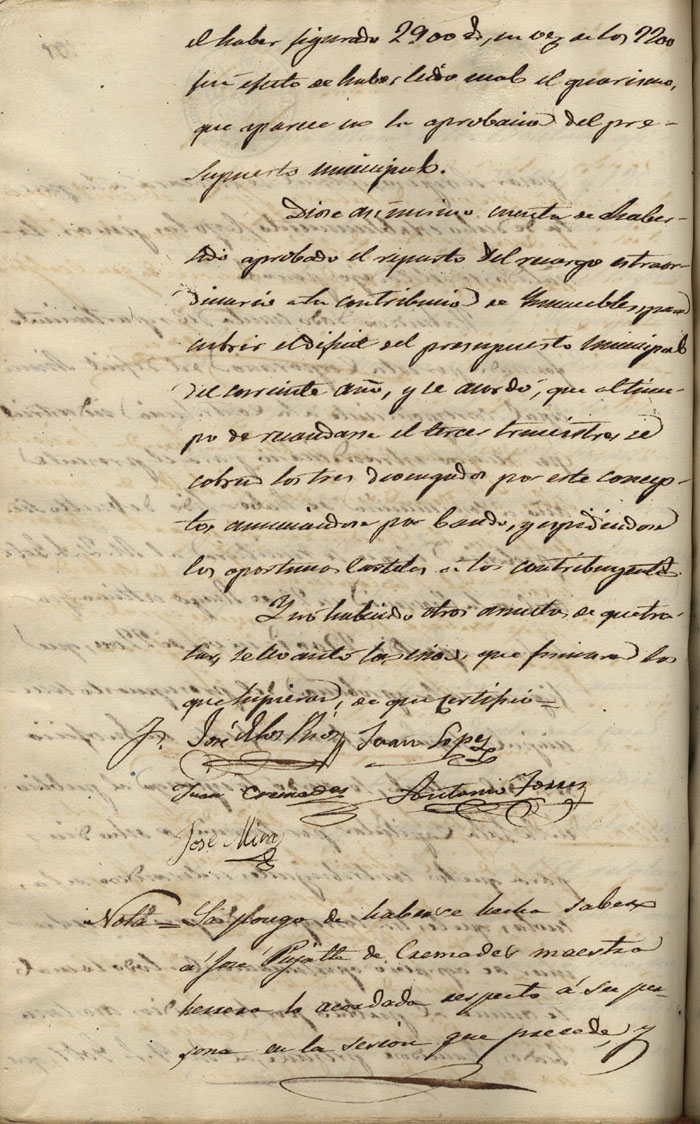 el haber figurado 2900 rs, en vez de los 2200
fue efecto de haber leido mal el guarismo,
que aparece en la aprobacion del pre-
supuesto municipal.
Diose asimismo cuenta de haber-
sido aprobado el reparto del recargo estraor-
dinario a la contribucion de Ynmuebles, para
cubrir el deficit del presupuesto Municipal
del corriente año, y se acordó, que al tiem-
po de recaudarse el tercer trimestre, se
cobren los tres devengados por este concep-
to, anunciandose por bando, y espidiendose
las oportunas a los contribuyentes.
Y no habiendo otros asuntos de que tra-
tar, se levanto la sesion, que firmaron los
que supieron, de que certifico=
P. José Juan Lopez
Juan Cremades Antonio Torres
Jose Mira
Nota= La pongo de haberse hecho saber
á José Pujalte de Cremades maestro
herrero lo acordado respecto á su per-
sona en la sesion que precede, y